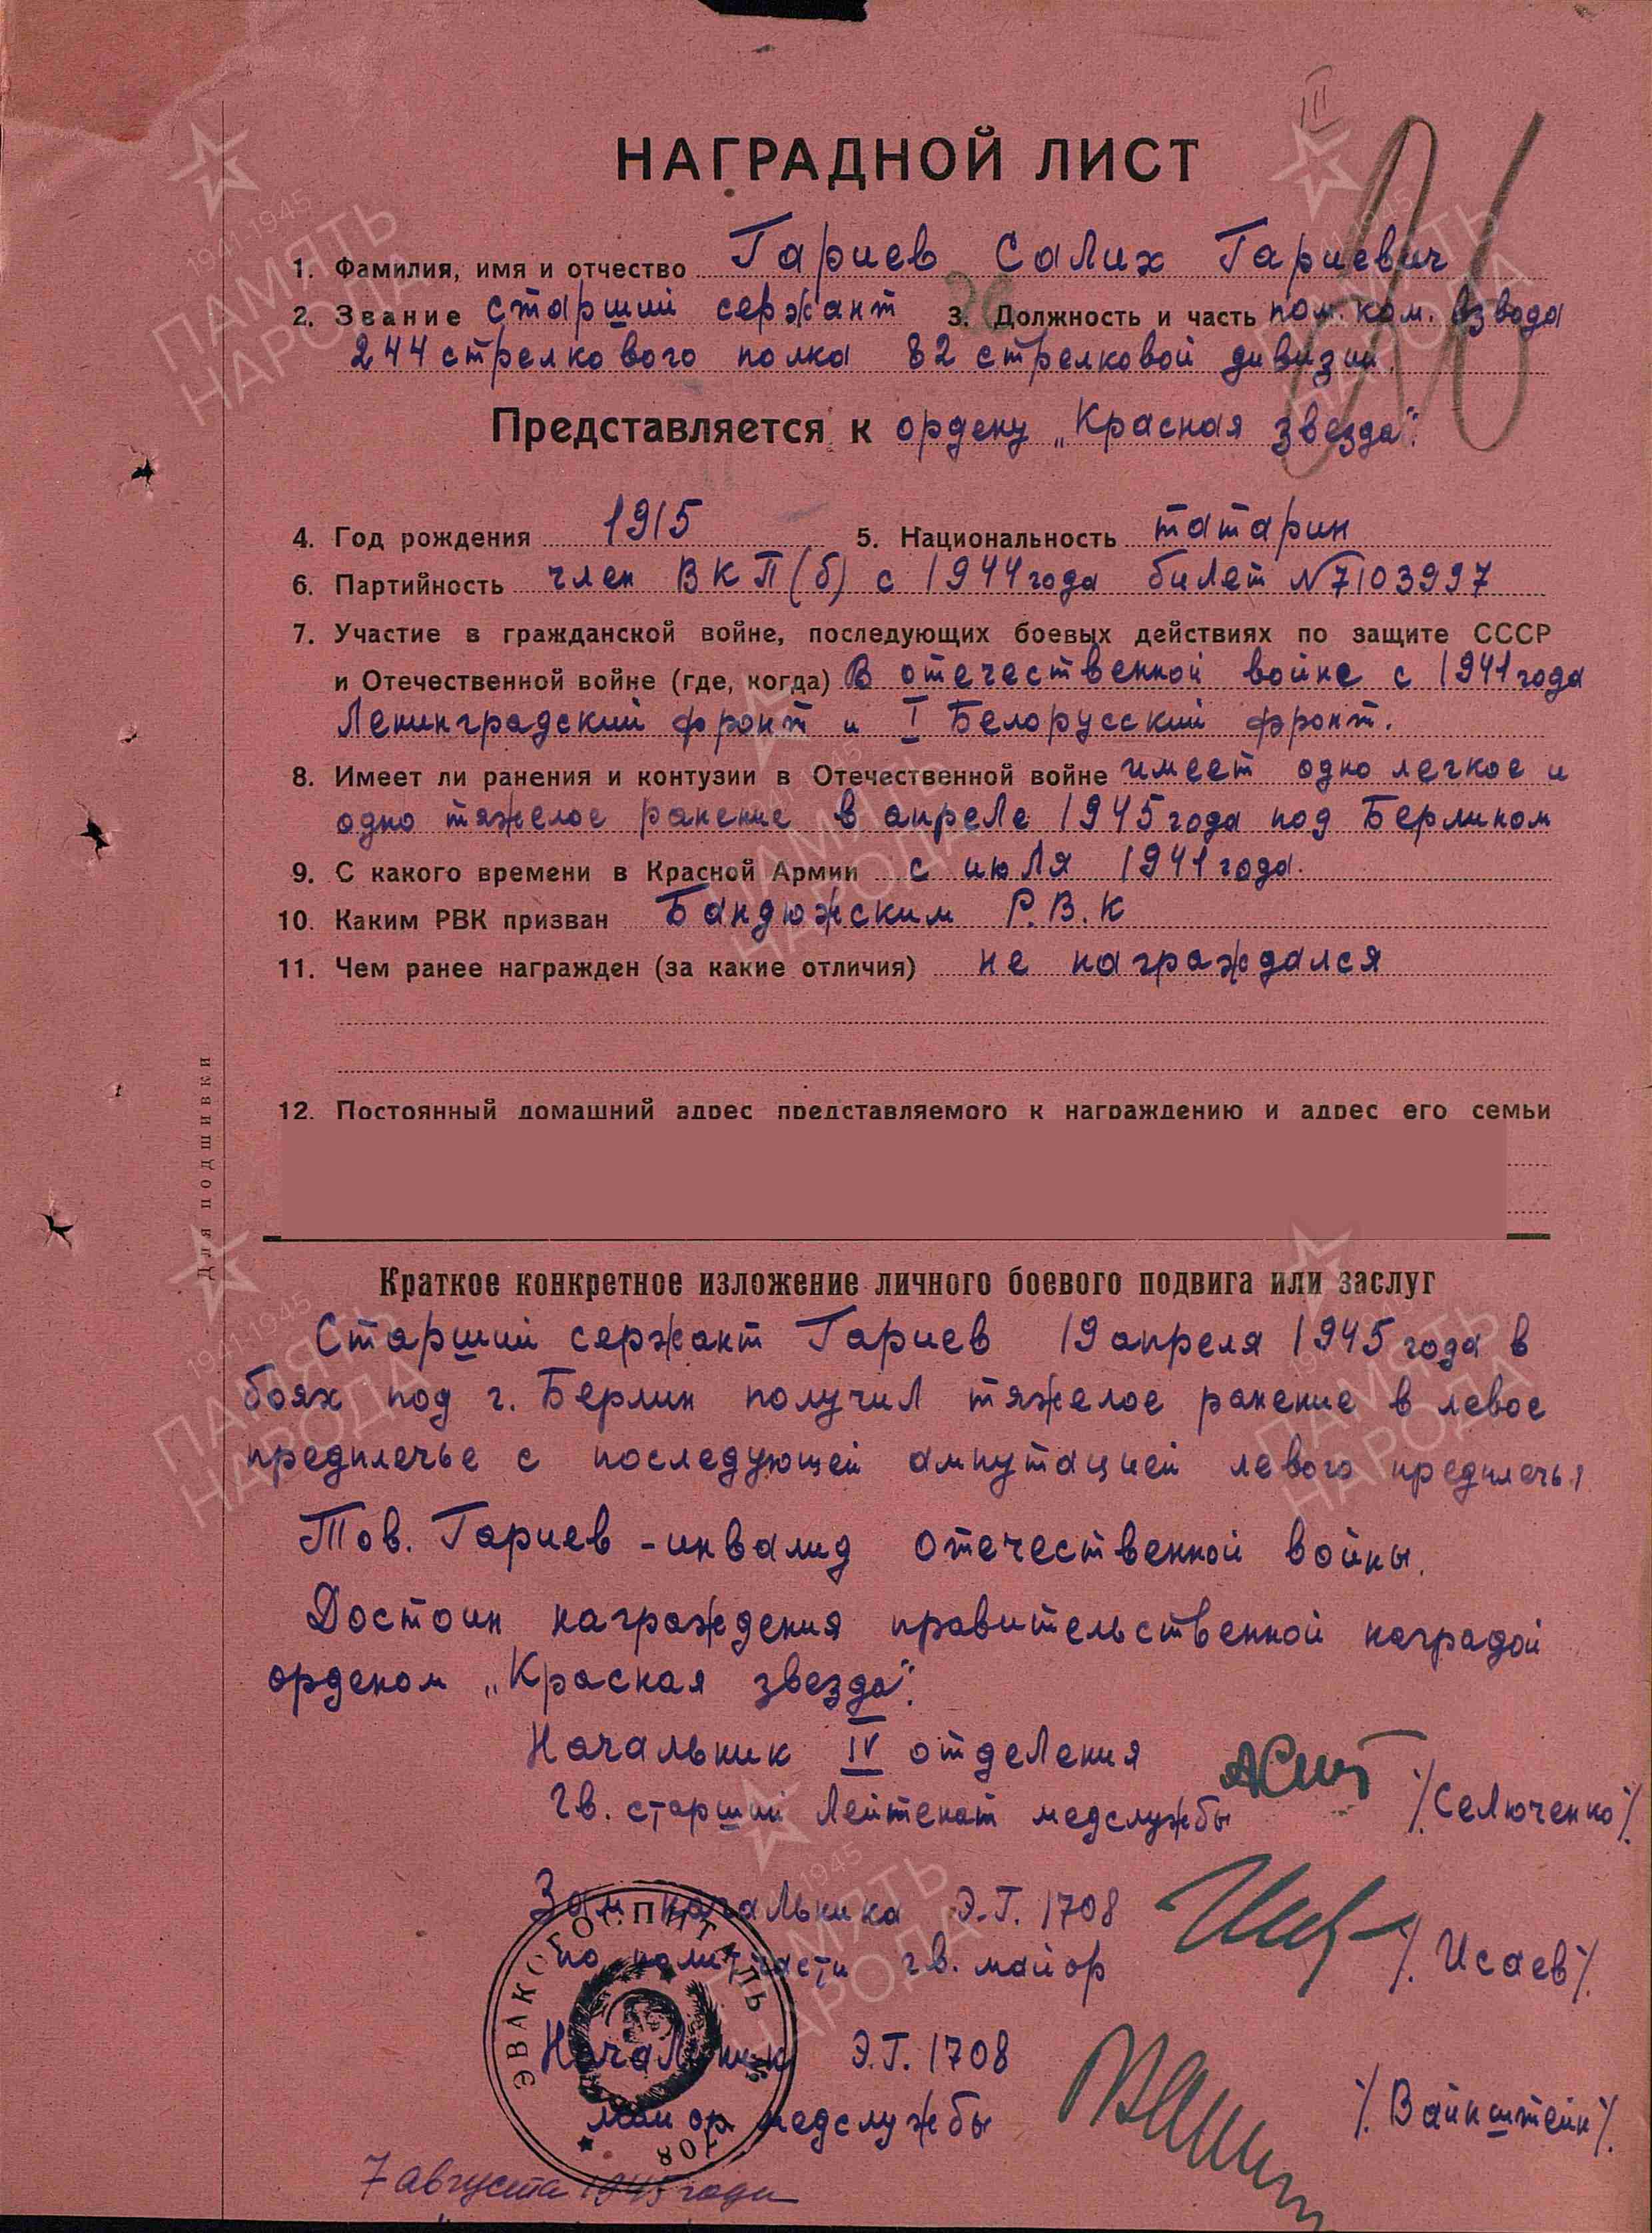 НАГРАДНОЙ ЛИСТ
1. Фамилия, имя и отчество Гариев Салих Гариевич
2. Звание старший сержант 3. Должность и часть пом. ком. взвода
244 стрелкового полка 82 стрелковой дивизии.
Представляется к ордену „Красная звезда".
4. Год рождения 1915 5. Национальность татарин
6. Партийность член ВКП(б) с 1944 года билет №7103997
7. Участие в гражданской войне, последующих боевых действиях по защите СССР
и Отечественной войне (где, когда) В отечественной войне с 1941 года
Ленинградский фронт и I Белорусский фронт.
8. Имеет ли ранения и контузии в Отечественной войне имеет одно легкое и
одно тяжелое ранение в апреле 1945 года под Берлином
9. С какого времени в Красной Армии с июля 1941 года.
10. Каким РВК призван Бандюжским Р.В.К
11. Чем ранее награжден (за какие отличия) не награждался
12. Постоянный домашний адрес представляемого к награждению и адрес его семьи
Для подшивки
Краткое конкретное изложение личного боевого подвига или заслуг
Старший сержант Гариев 19 апреля 1945 года в
боях под г. Берлин получил тяжелое ранение в левое
предплечье с последующей ампутацией левого предплечья
Тов. Гариев - инвалид отечественной войны.
Достоин награждения правительственной наградой
орденом „Красная звезда".
Начальник IV отделения
гв. старший лейтенат медслужбы /Селюченко/
Зам начальника Э.Г. 1708
по политчасти гв. майор /Исаев/
Начальник Э.Г. 1708
майор медслужбы /Вайнштейн/
ЭВАКОГОСПИТАЛЬ № 1708
7 августа 1945 года
ПАМЯТЬ НАРОДА
1941-1945